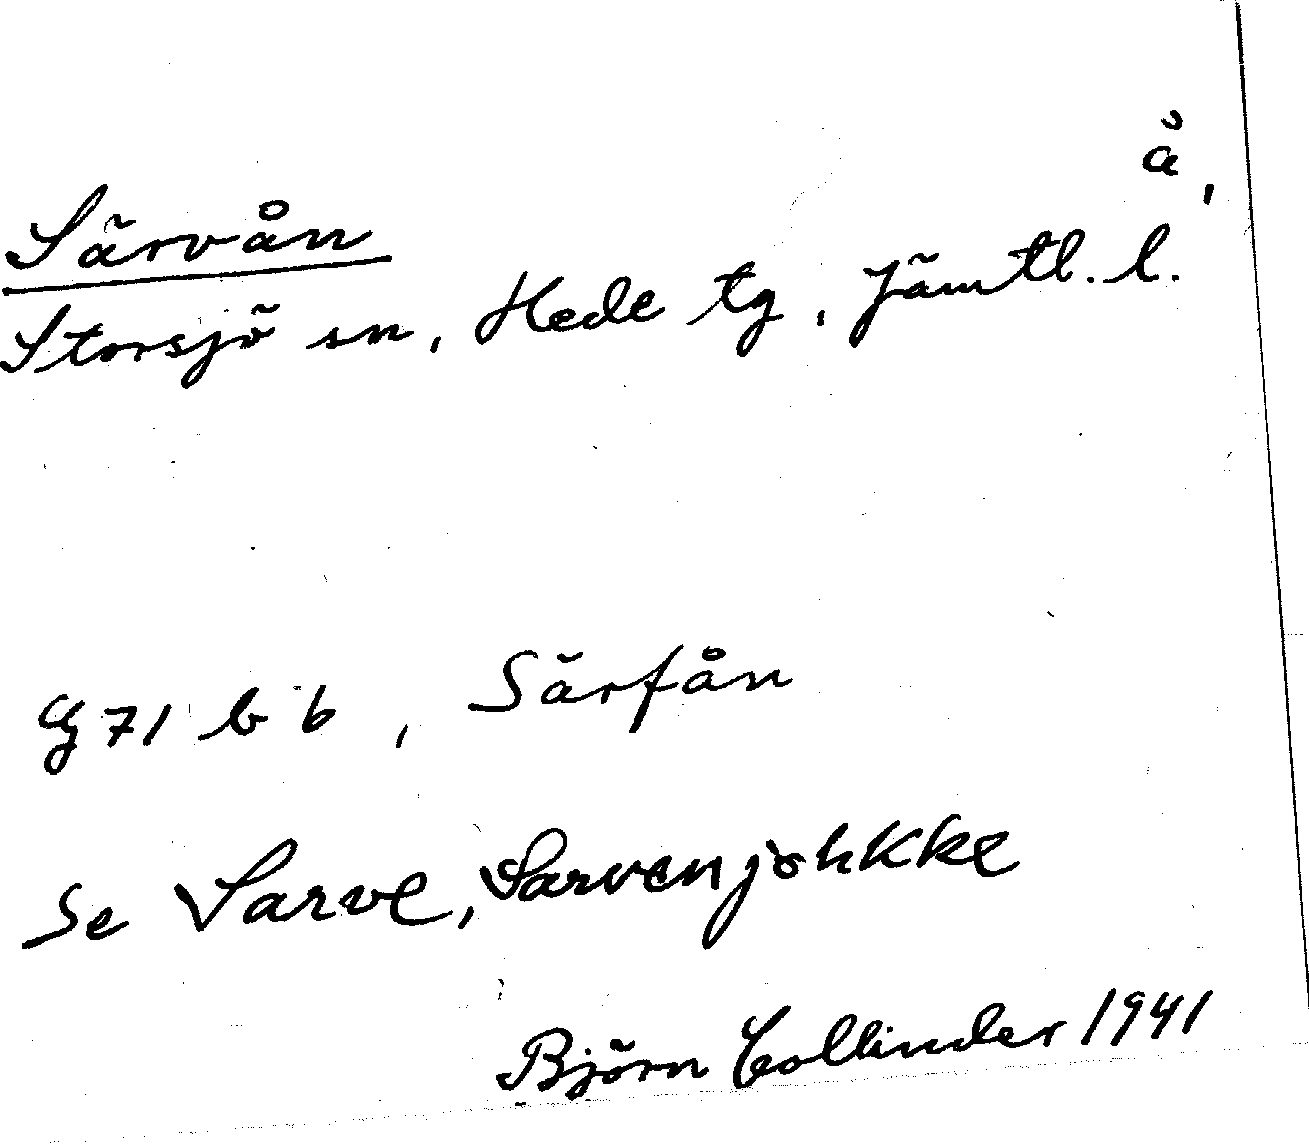 å,
Särvån
Storsjö sn, Hede tg, Jämtl. l.
G 71 b b, Särfån
Se Sarve, Sarvenjohkke
Björn Collinder 1941